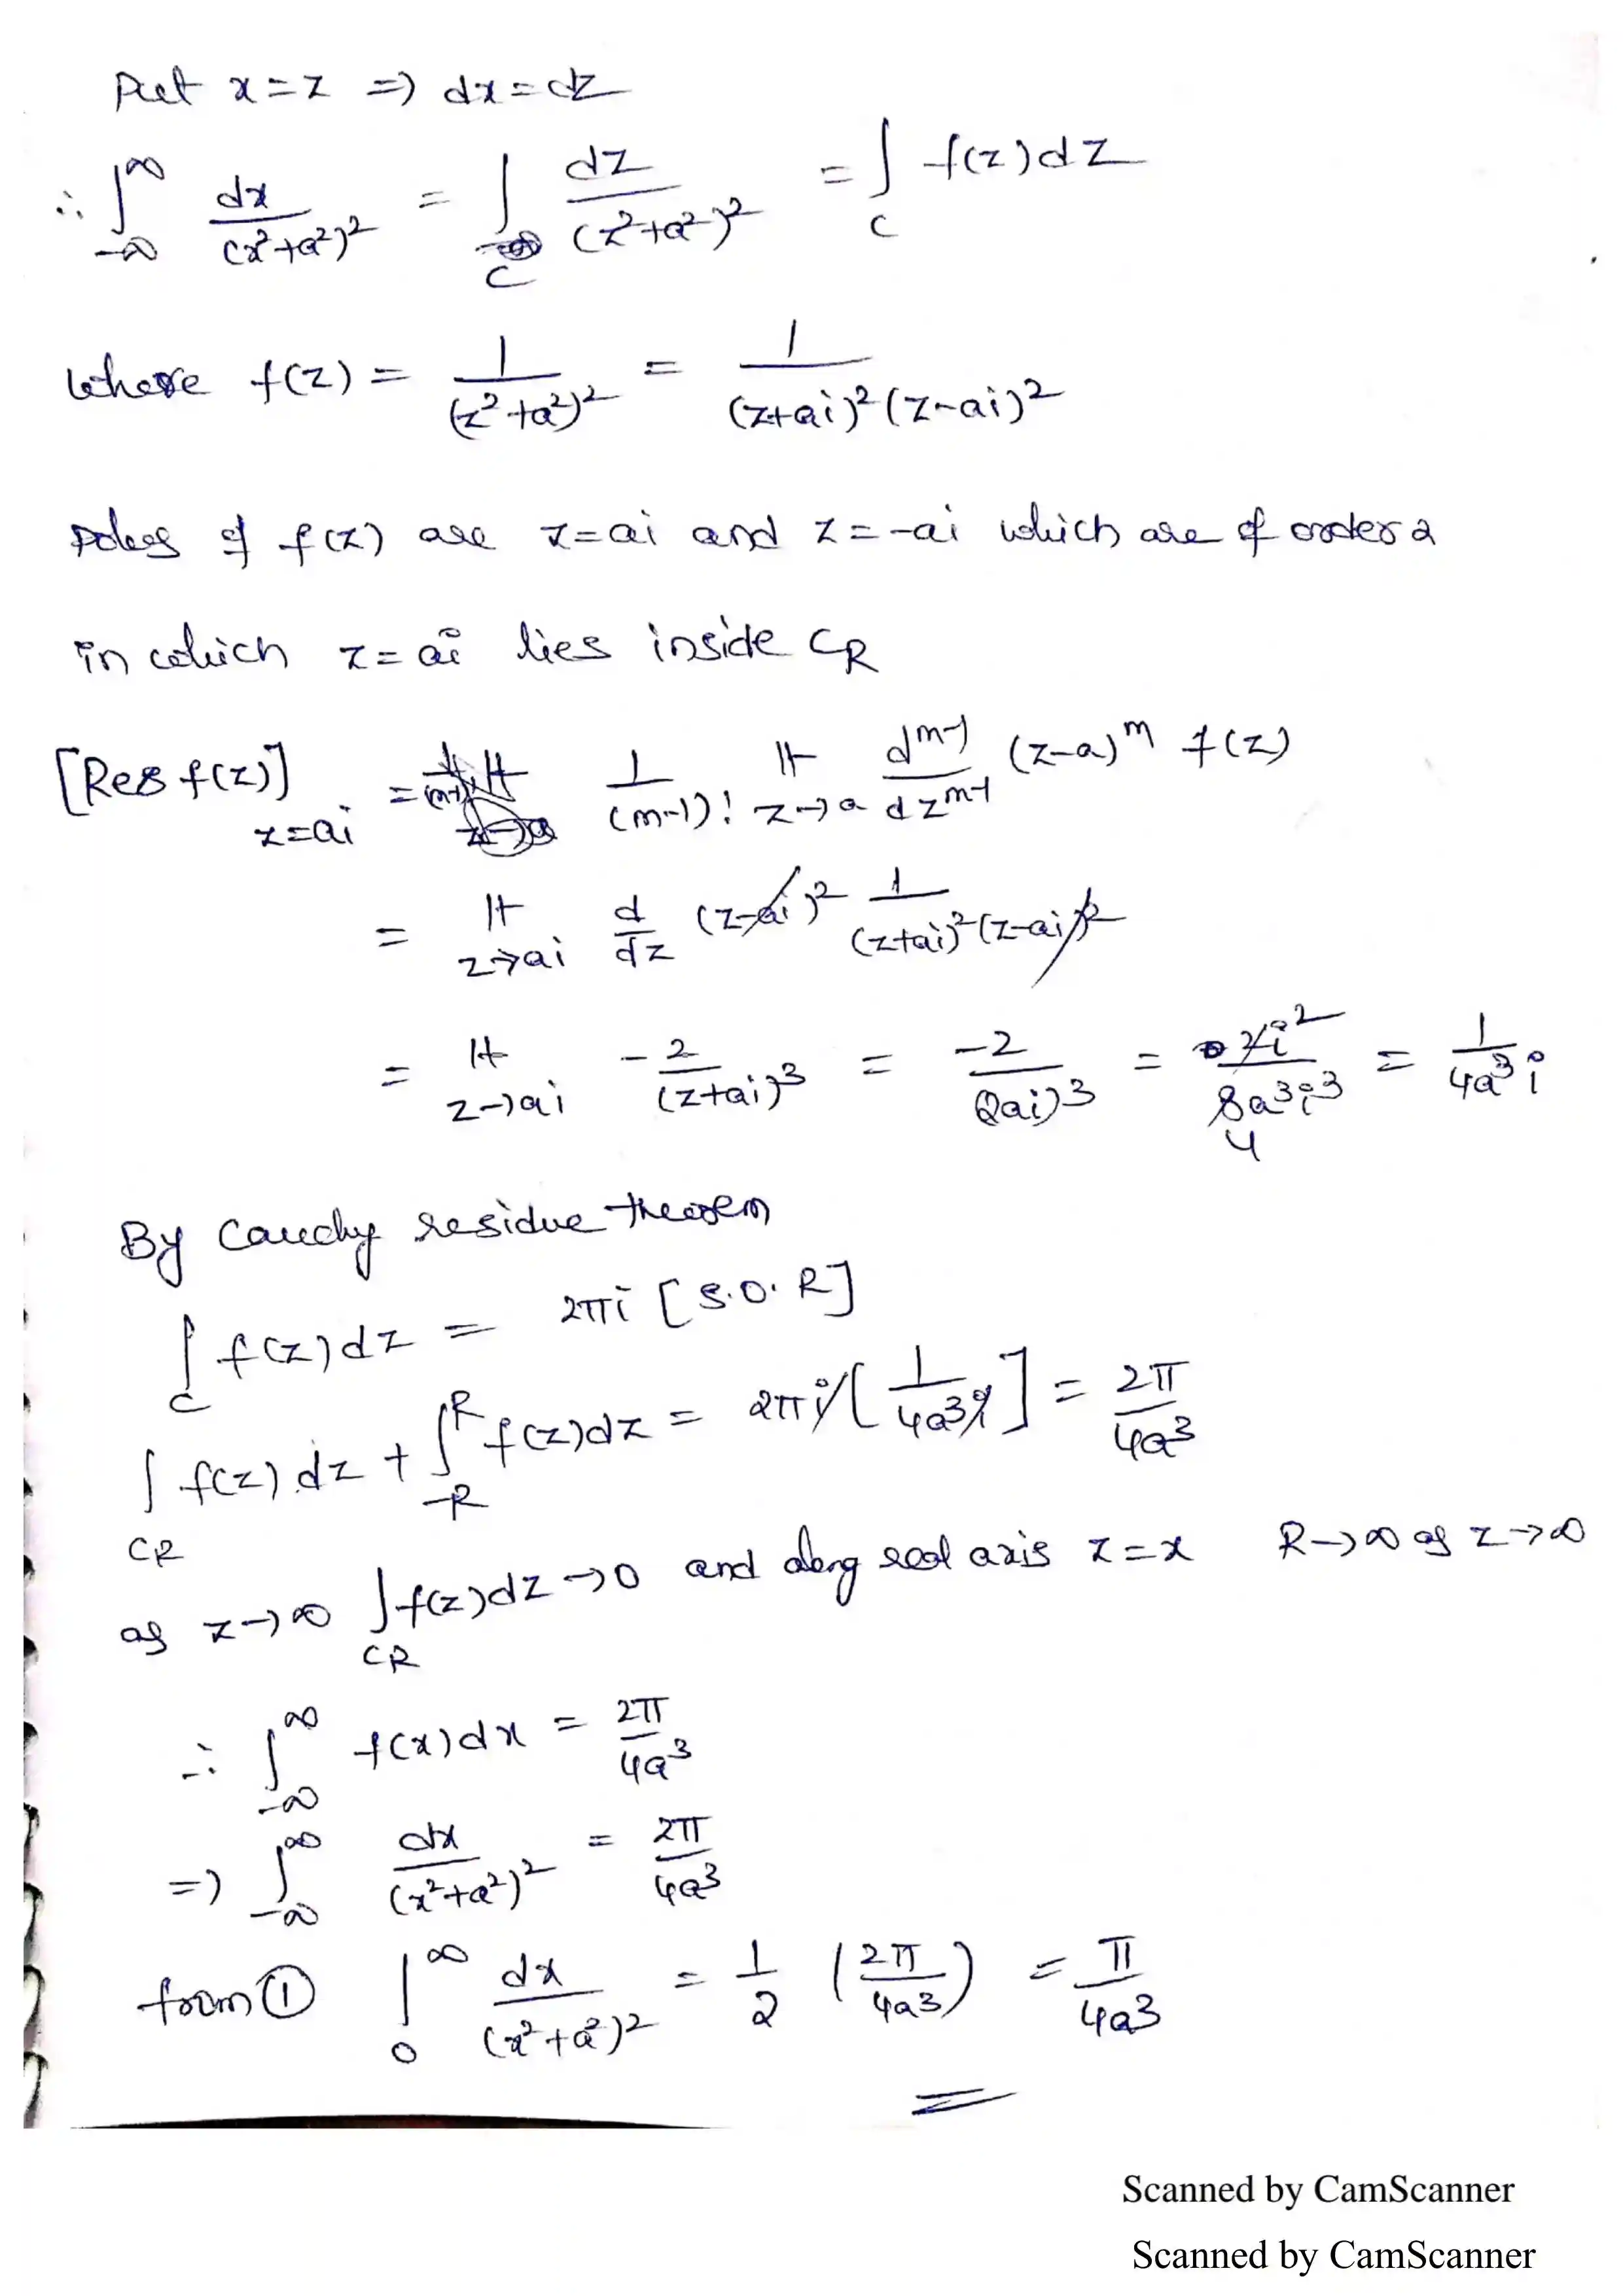 Put x = z => dx = dz
∴ ∫_{-∞}^{∞} dx/(x²+a²)² = ∫_C dz/(z²+a²)² = ∫_C f(z)dz
where f(z) = 1/(z²+a²)² = 1/((z+ai)²(z-ai)²)
poles of f(z) are z=ai and z=-ai which are of order 2
in which z=ai lies inside C_R
[Res f(z)]_{z=ai} = 1/(m-1)! lt_{z→a} d^{m-1}/dz^{m-1} (z-a)^m f(z)
= lt_{z→ai} d/dz (z-ai)² 1/((z+ai)²(z-ai)²)
= lt_{z→ai} -2/(z+ai)³ = -2/(2ai)³ = 2i²/8a³i³ 4 = 1/4a³i
By Cauchy residue theorem
∫_C f(z)dz = 2πi [S.O.R]
∫_{CR} f(z)dz + ∫_{-R}^{R} f(z)dz = 2πi[1/4a³i] = 2π/4a³
as z→∞ ∫_{CR} f(z)dz→0 and along real axis z=x R→∞ as z→∞
∴ ∫_{-∞}^{∞} f(x)dx = 2π/4a³
=> ∫_{-∞}^{∞} dx/(x²+a²)² = 2π/4a³
from ① ∫_0^∞ dx/(x²+a²)² = 1/2 (2π/4a³) = π/4a³
Scanned by CamScanner
Scanned by CamScanner